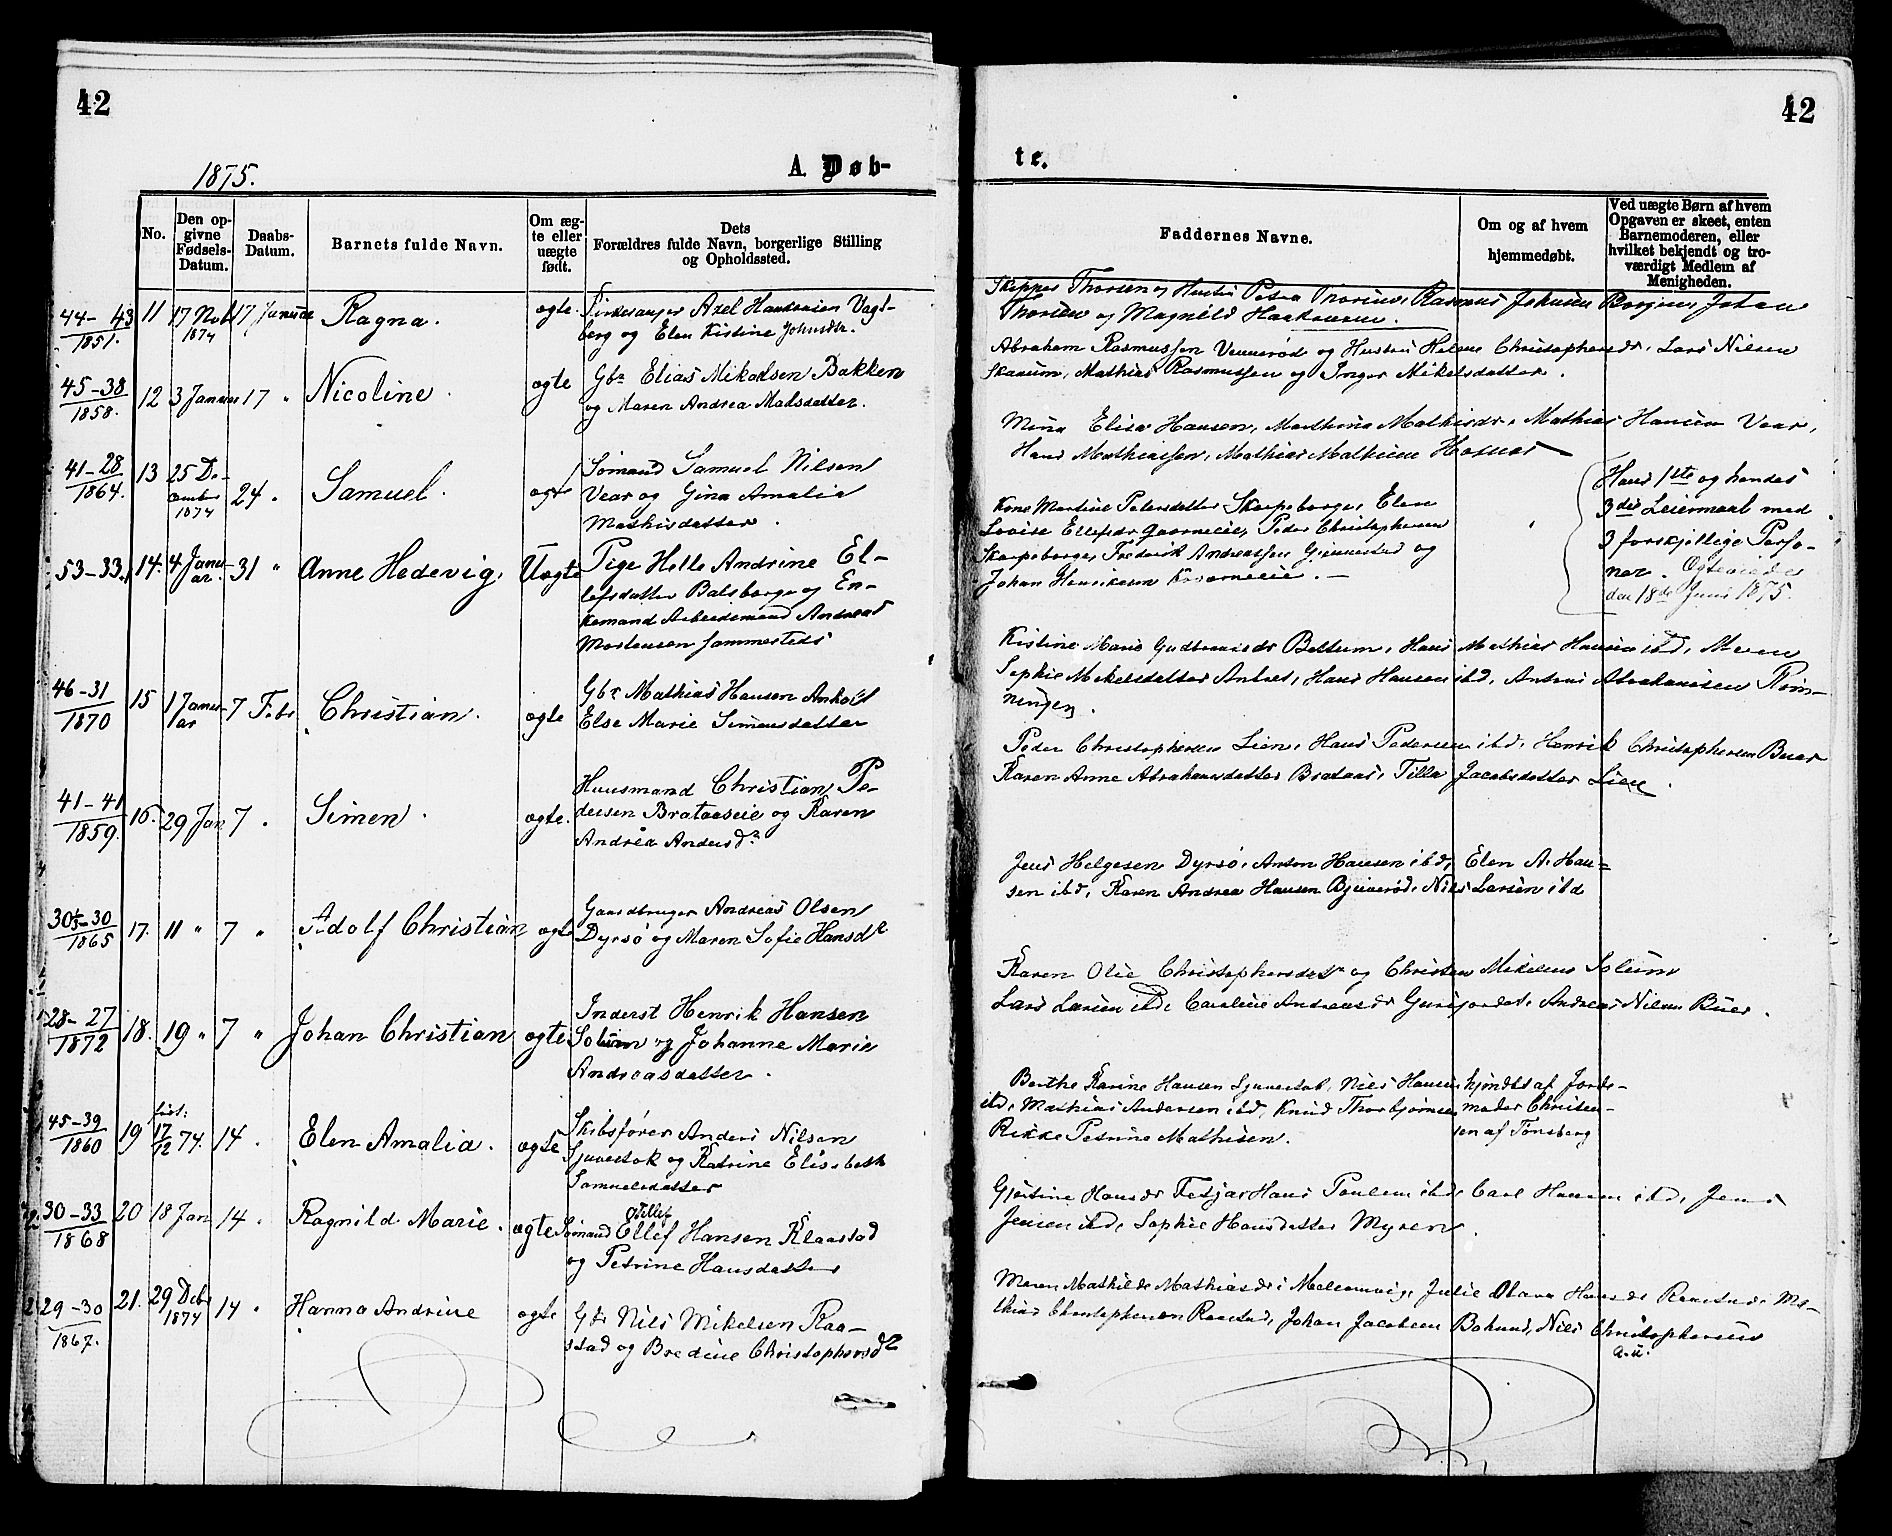 42
42
1875.
A. Døb-
te.
No.
Den op-
givne
Fødsels-
Datum.
Daabs-
Datum.
Barnets fulde Navn.
Om æg-
te eller
uægte
født.
Dets
Forældres fulde Navn, borgerlige Stilling
og Opholdssted.
Faddernes Navne.
Om og af hvem
hjemmedøbt.
Ved uægte Børn af hvem
Opgaven er skeet, enten
Barnemoderen, eller
hvilket bekjendt og tro-
værdigt Medlem af
Menigheden.
44-43
1851.
11
17 Nob
1874
17 Januar
Ragna.
ægte.
Axel
berg og Elen Kistine Johnsdtr.
Skipper Thorsen og Hustru Petra
Thorsen og Magnild
45-38
1858.
12
3 Januar
17 "
Nicoline.
ægte
Gbr Elias Mikalsen Bakken
og Maren Andrea Madsdatter.
Abraham Rasmussen og Hustru Helene Christophersdr, Lars Nilsen
Mathias Rasmussen og Inger Mikelsdatter.
41-28
1864.
13
25 De-
cember
1874
24 "
Samuel.
ægte
Sømand Samuel Nilsen
Vear og Gina Amalia
Mathisdatter.
Mina Elisa Hansen, Mathisdr, Mathias Hansen Vear,
Hans Mathiassen, Mathias
53-33.
14.
4 Janu-
ar.
31 "
Anne Hedevig.
Uægte
Pige Helle Andrine El-
lefsdatter Balsberge og En-
kemand Arbeidsmand Andreas
Mortensen Sammesteds
Kone Martine Petersdatter Skarpeborge, Elen
Lovise Ellefsdr Peder Christophersen
Skarpeborge, Frederik Andreassen og
Johan Henriksen
Hans 1ste og hendes
3die Leiermaal med
3 forskjellige Perso-
ner. Ægteviede
den 18de Juni 1875.
46-31
1870
15
1 Janu-
ar
7 Febr
Christian.
ægte
Gbr Mathias Hansen
Else Marie Simensdatter
Kistine Marie Gudbrandsdr Bettum, Hans Mathias Hansen ibd, Maren
Sophie Mikelsdatter Hans Hansen ibd, Abrahamsen Røn-
ningen.
41-41
1859.
16.
29 Jan
7 "
Simen.
ægte.
Huusmand Christian Pe-
dersen Brataaseie og Karen
Andrea Andersdr
Peder Christophersen Lien, Hans Pedersen ibd, Henrik Christophersen Buer
Karen Anne Abrahamsdatter Brataas, Tilla Jacobsdatter Lien.
30-30
1865
17.
11 "
7 "
Adolf Christian
ægte
Gaardbruger Andreas Olsen
Dyrsø og Maren Sofie Hansdr
Jens Helgesen Dyrsø, Anton Hansen ibd, Elen A. Han-
sen ibd, Karen Andrea Hansen Nils Larsen ibd
28-27
1872
18.
19 "
7 "
Johan Christian
ægte
Inderst Henrik Hansen
Solum og Johanne Marie
Andreasdatter.
Karen Olie Christophersdatr og Christen Mikelsen Solum
Lars Larsen ibd, Caroline Andreasdr Andreas Nilsen Buer.
45-39
1860
19
født:
17/12 74.
14.
Elen Amalia.
ægte
Skibsfører Anders Nilsen
og Katrine Elisabeth
Samuelsdatter
Berthe Karine Hansen Nils Hansen
ibd, Mathias Andersen ibd, Knud Thorbjørnsen
Rikke Petrine Mathisen.
hjmdbt af Jorde-
moder Christen-
sen af Tønsberg
30-33
1868
20
18 Jan
14.
Ragnild Marie.
ægte
Tellef
Sømand Ellef Hansen Klaastad
og Petrine Hansdatter
Hansdr Hans Paulsen ibd, Carl Hansen ibd, Jens
Jensen ibd, Sophie Hansdatter Myren.
29-30
1867.
21.
29 Debr
1874
14 "
Hanna Andrine
ægte
Gbr Nils Mikelsen Raa-
stad og Bredine Christophersdr
Maren Mathilde Mathiasdr Julie Olava Hansdr Raastad, Ma-
thias Christophersen Raastad, Johan Jacobsen Nils Christophersen